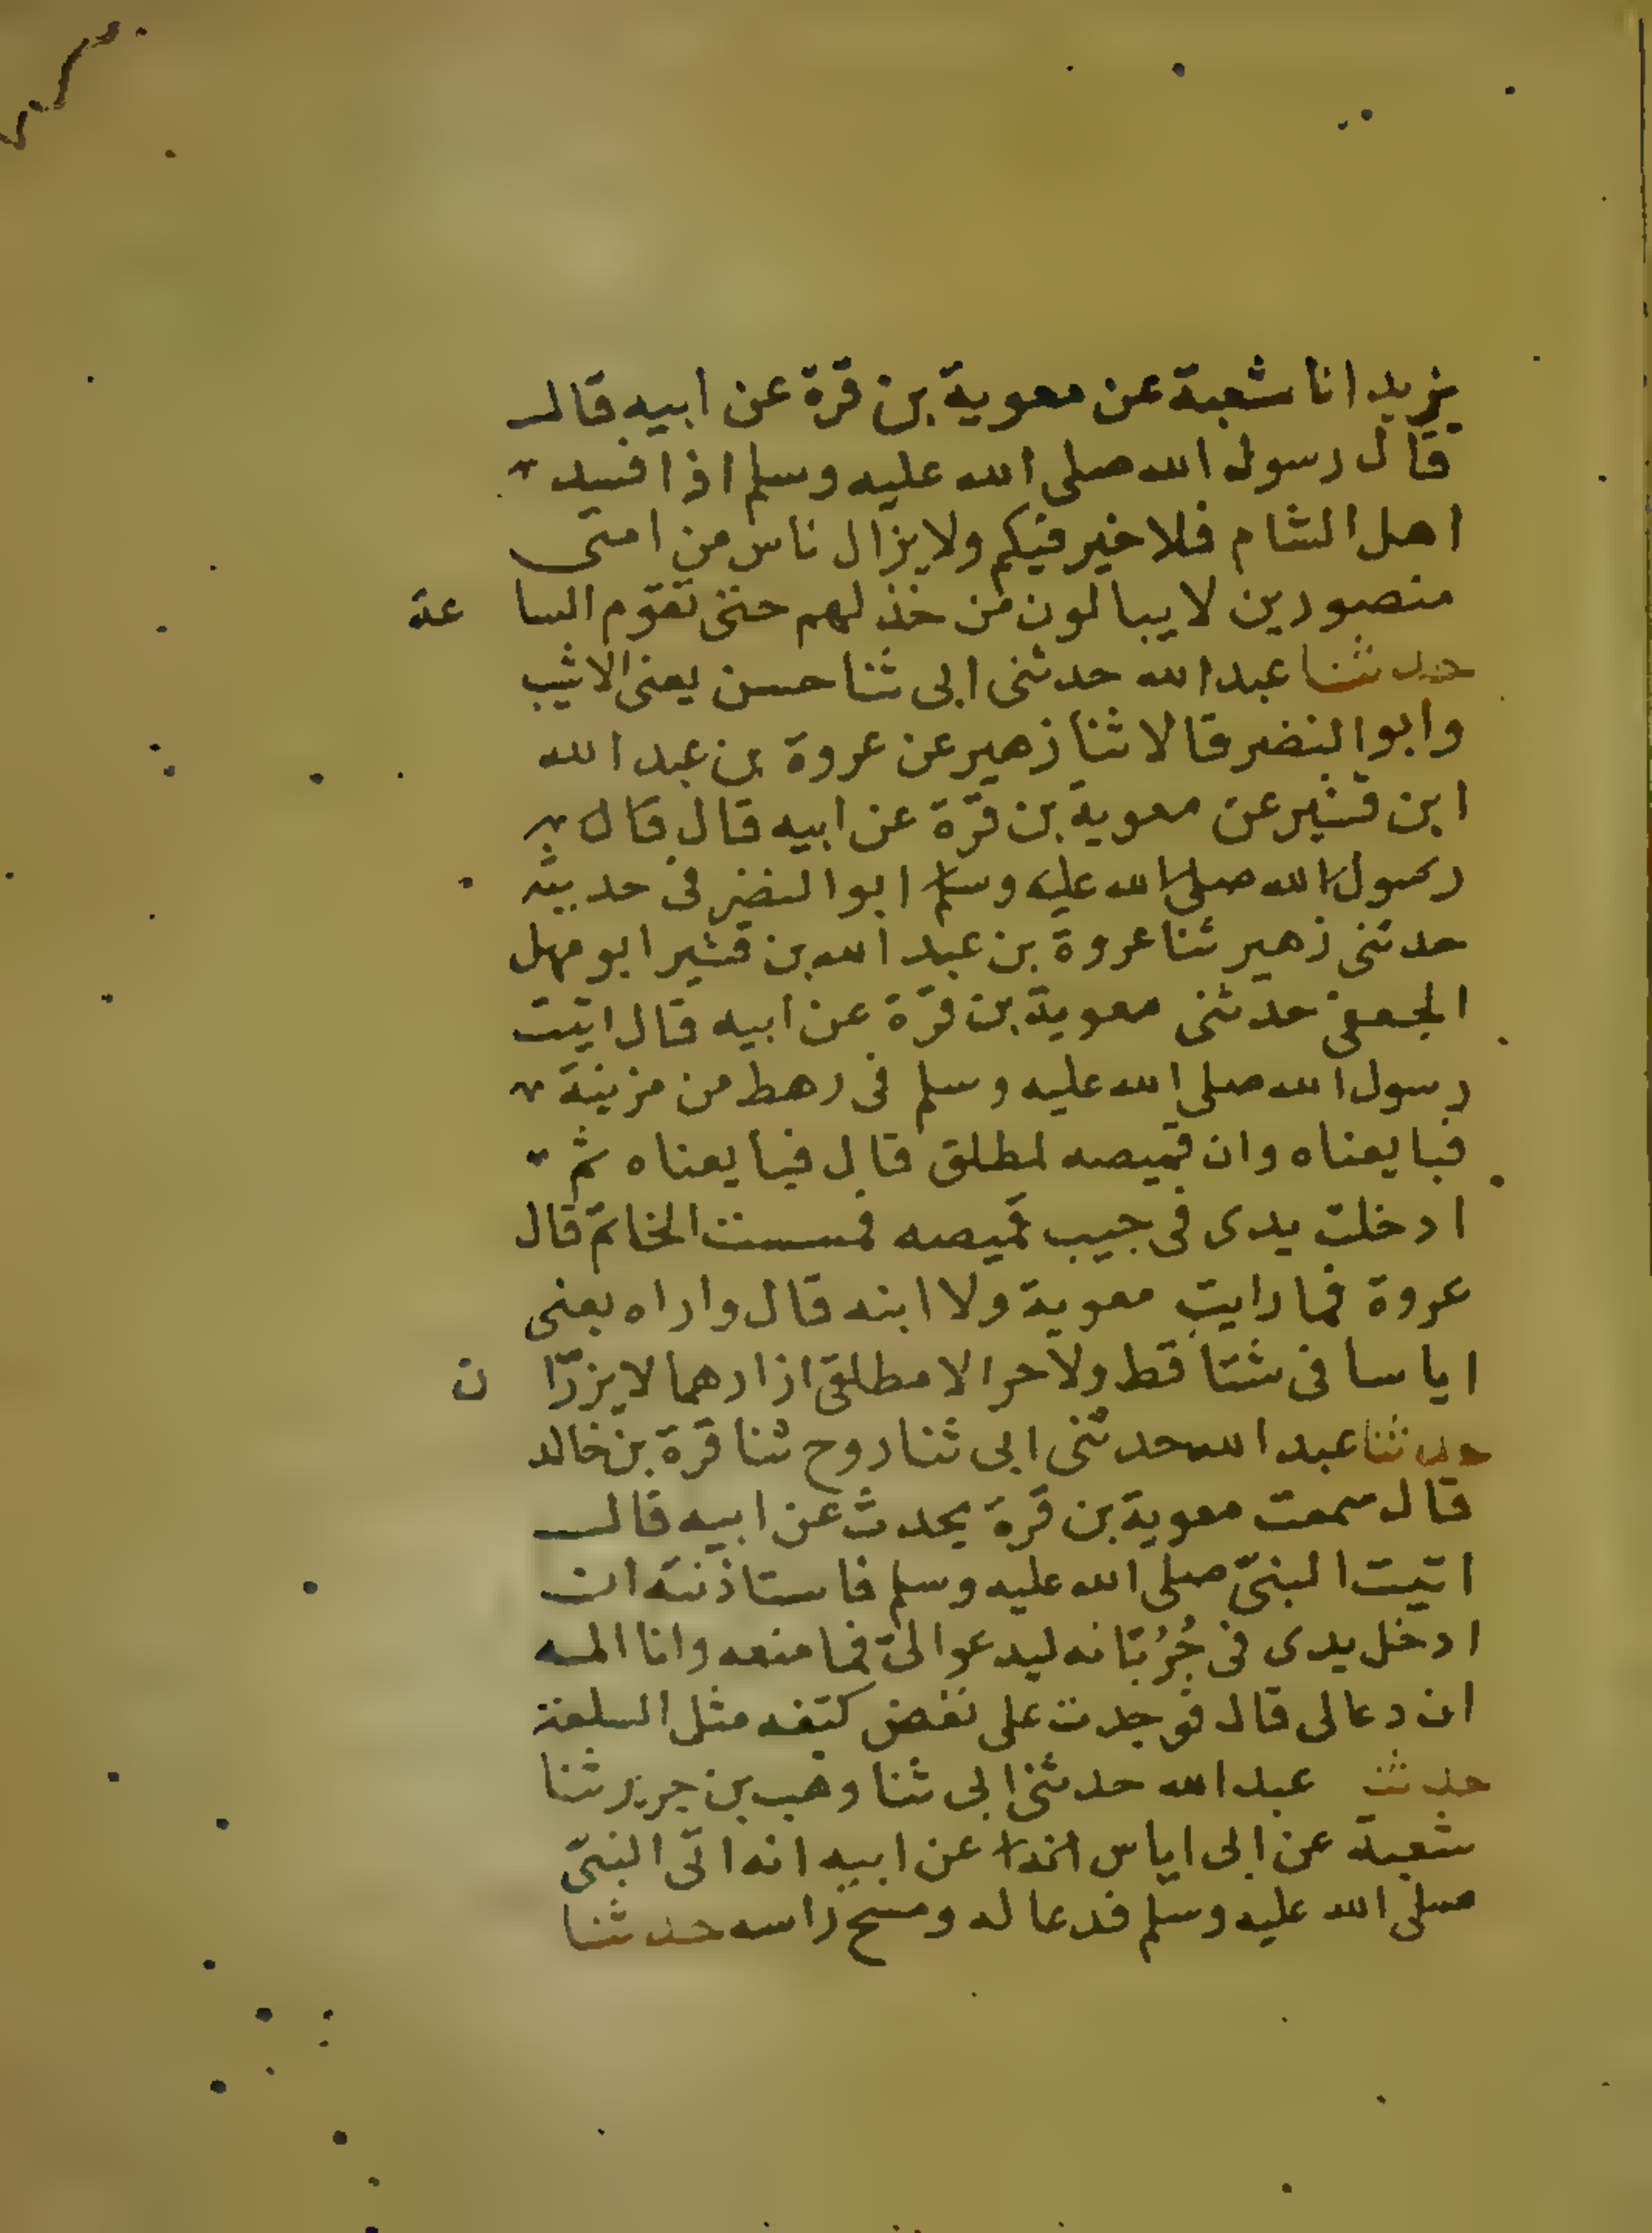 يزيد انا شعبة عن معوية بن قرة عن ابيه قال
قال رسول الله صلى الله عليه وسلم اذا فسد
اهل الشام فلا خير فيكم ولا يزال ناس من امتى
منصورين لا يبالون من خذلهم حتى تقوم الساعة
حدثنا عبد الله حدثنى ابى ثنا حسن يعنى الاشيب
وابو النضر قالا ثنا زهير عن عروة بن عبد الله
ابن قشير عن معوية بن قرة عن ابيه قال قال
رسول الله صلى الله عليه وسلم ابو النضر فى حديثه
حدثنى زهير ثنا عروة بن عبد الله بن قشير ابو مهل
الجعفى حدثنى معوية بن قرة عن ابيه قال اتيت
رسول الله صلى الله عليه وسلم فى رهط من مزينة
فبايعناه وان قميصه لمطلق قال فبايعناه ثم
ادخلت يدى فى جيب قميصه فمسست الخاتم قال
عروة فما رايت معوية ولا ابنه قال واراه يعنى
اياسا فى شتا قط ولا حر الا مطلقى ازارهما لا يزرّان
حدثنا عبد الله حدثنى ابى ثنا روح ثنا قرة بن خالد
قال سمعت معوية بن قرة يحدث عن ابيه قال
اتيت النبىّ صلى الله عليه وسلم فاستاذنته ان
ادخل يدى فى جُرُبّانه ليدعو الىّ فما منعه وانا المسه
ان دعا لى قال فوجدت على نغض كتفه مثل السلعة
حدثنا عبد الله حدثنى ابى ثنا وهب بن جرير ثنا
شعبة عن ابى اياس عن ابيه انه اتى النبىّ
صلى الله عليه وسلم فدعا له ومسح راسه حدثنا